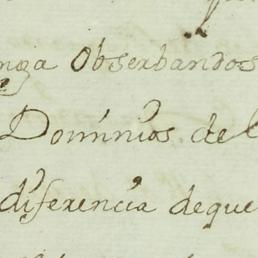 Obserbandos
Dominios del
diferencia deque